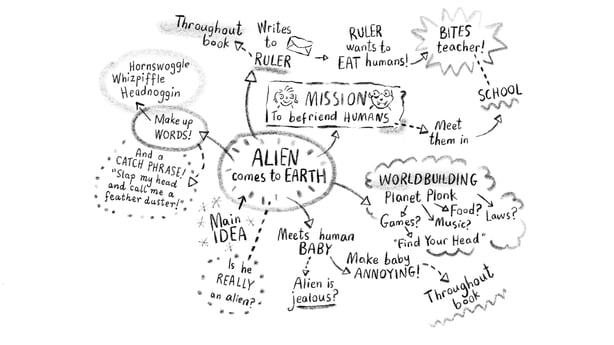 Throughout
book
Writes
to
RULER
RULER
wants to
EAT humans!
BITES
teacher!
SCHOOL
Hornswoggle
Whizpiffle
Headnoggin
Make up
WORDS!
And a
CATCH PHRASE!
"Slap my head
and call me a
feather duster!"
MISSION
To befriend HUMANS
Meet
them in
ALIEN
comes to EARTH
WORLDBUILDING
Planet Plonk
Games?
Food?
Music?
Laws?
"Find Your Head"
Main
IDEA
Is he
REALLY
an alien?
Meets human
BABY
Alien is
jealous?
Make baby
ANNOYING!
Throughout
book